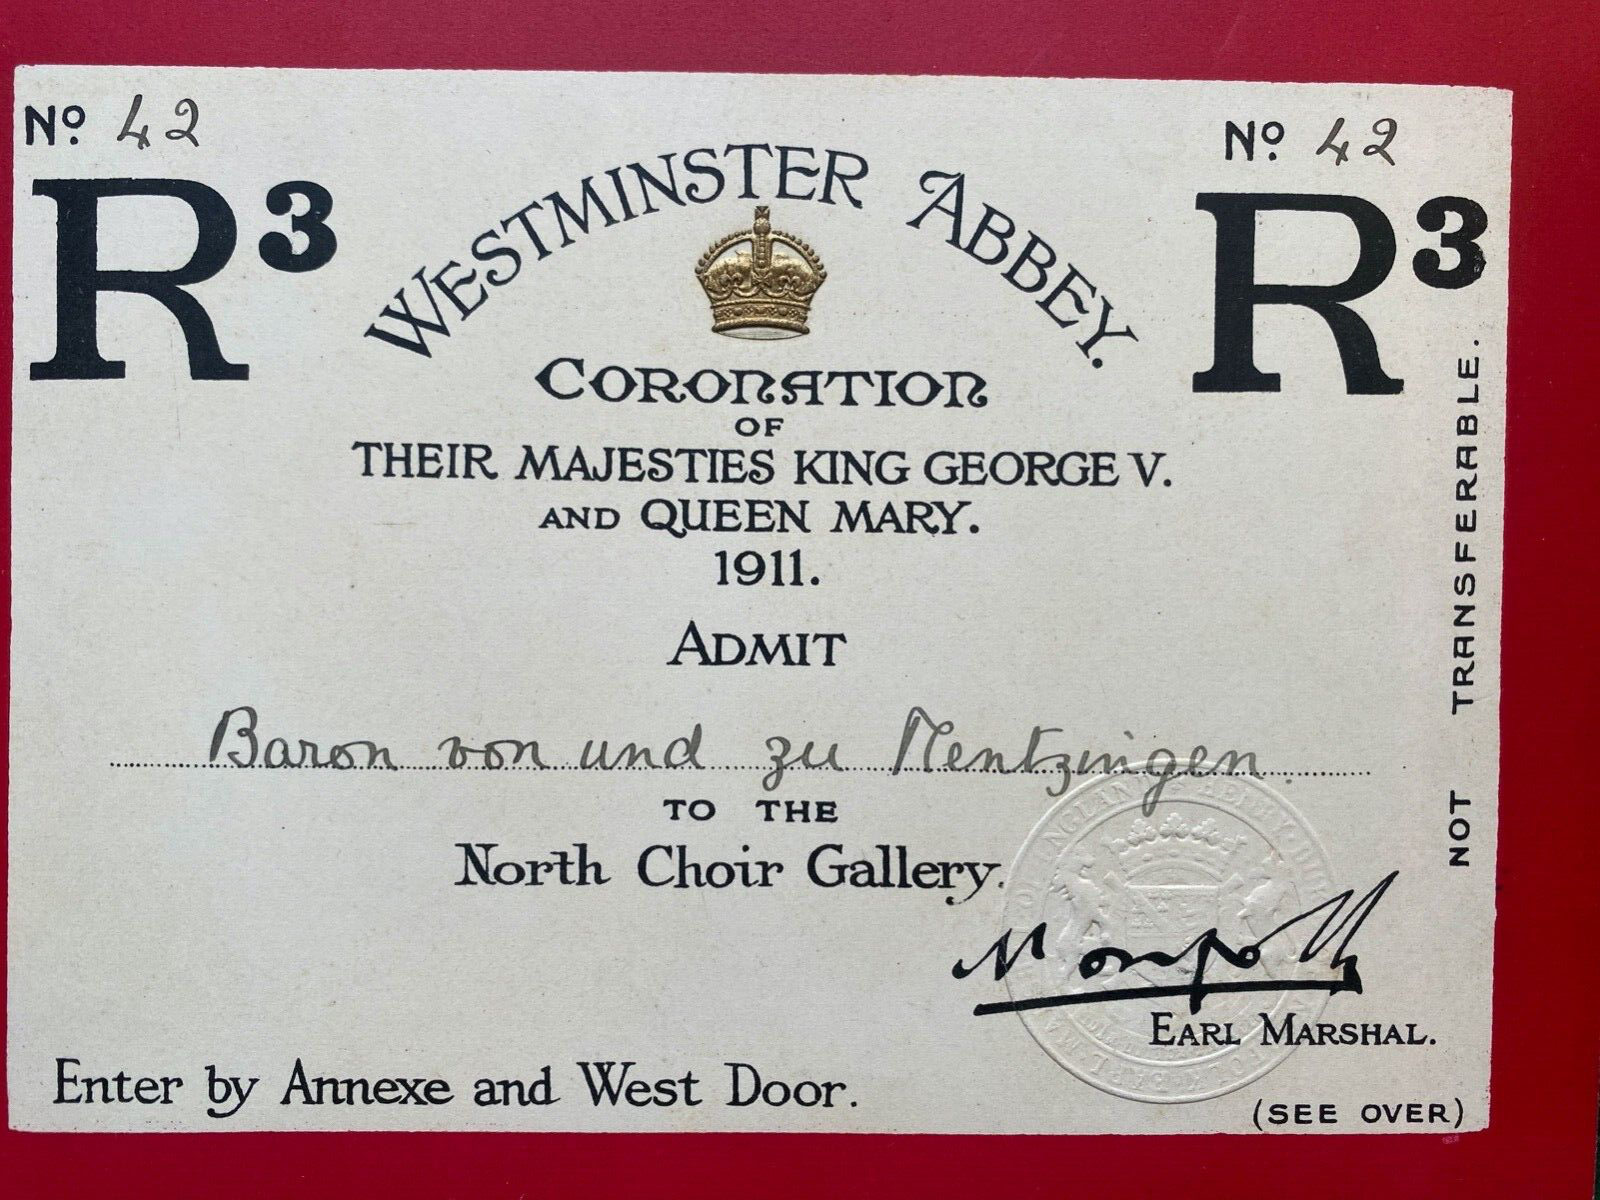 Nº 42
R3
Nº 42
R3
WESTMINSTER ABBEY.
CORONATION
OF
THEIR MAJESTIES KING GEORGE V.
AND QUEEN MARY.
1911.
ADMIT
Baron von und zu Mentzingen.
TO THE
North Choir Gallery.
Norfolk
EARL MARSHAL.
Enter by Annexe and West Door.
(SEE OVER)
NOT TRANSFERABLE.